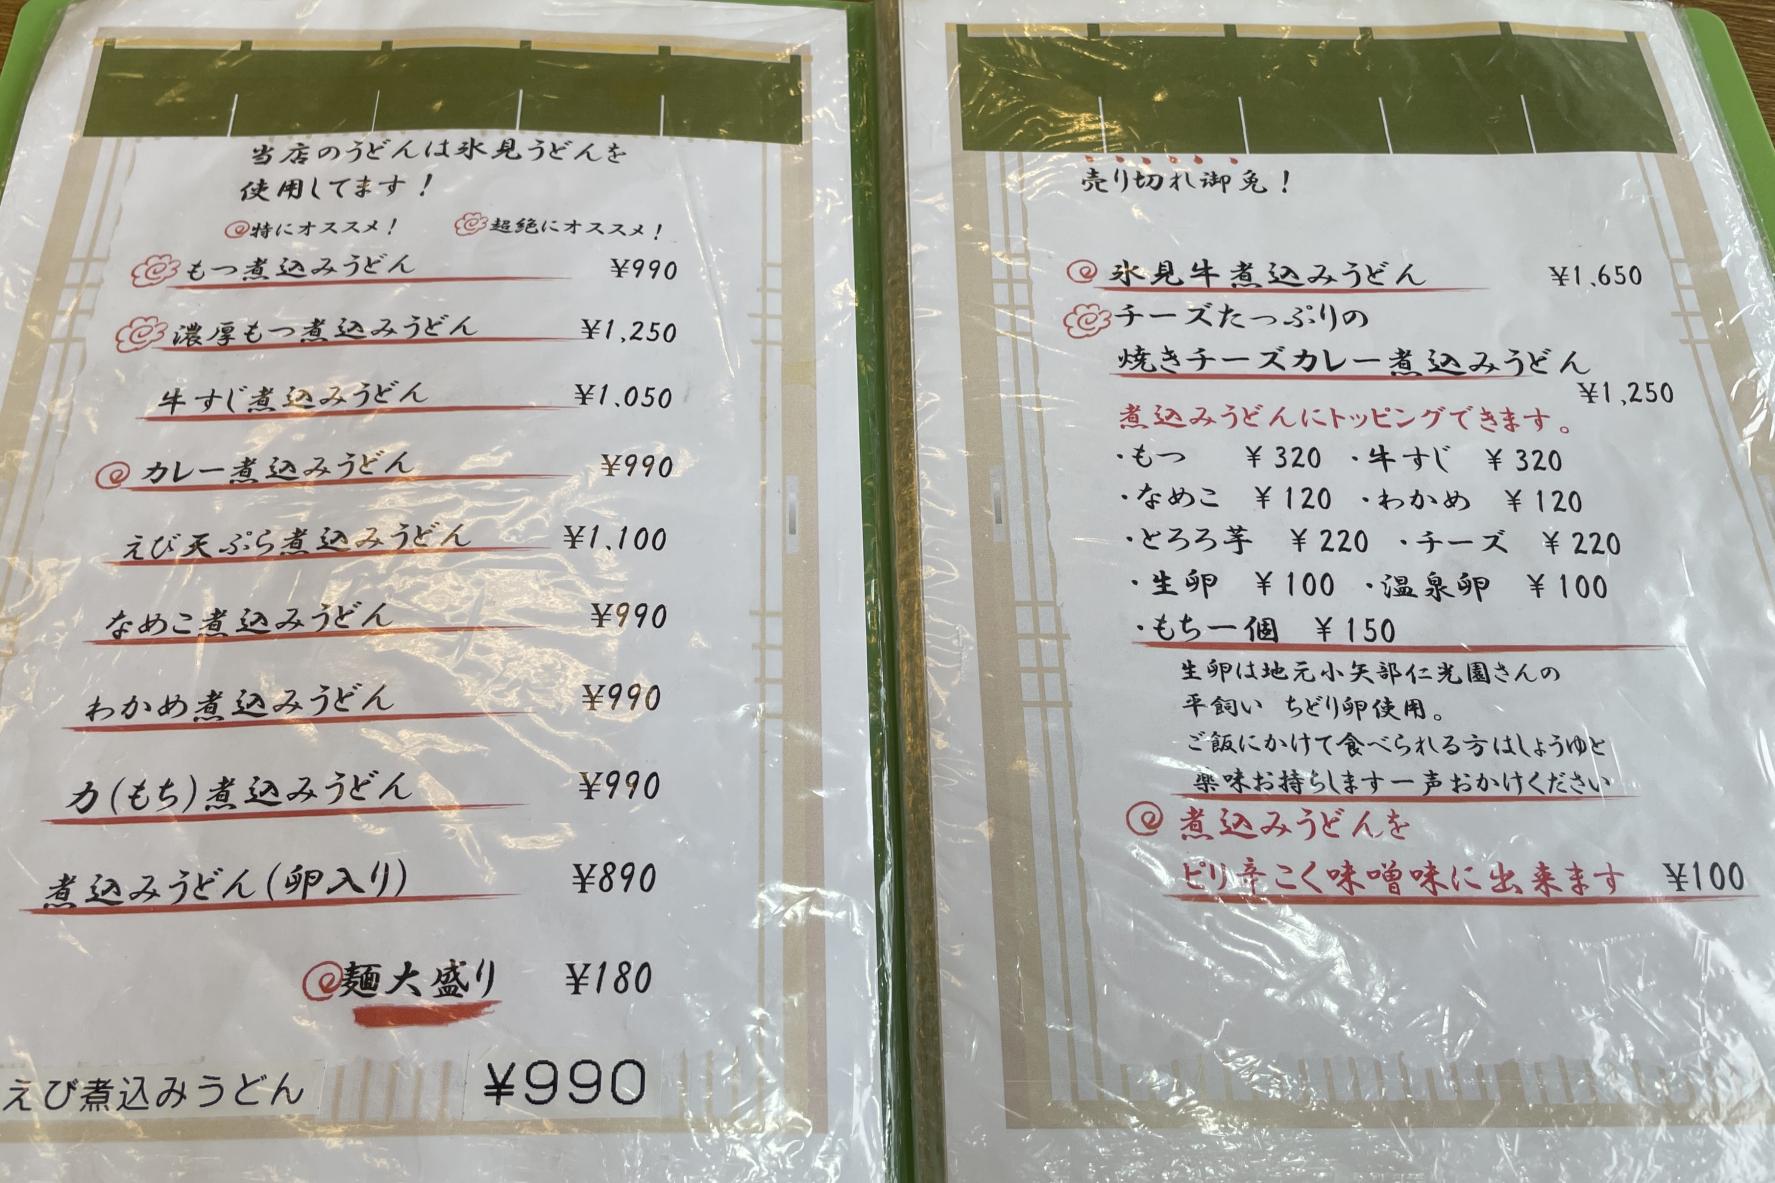 当店のうどんは氷見うどんを
使用してます！
特にオススメ！ 超絶にオススメ！
もつ煮込みうどん ¥990
濃厚もつ煮込みうどん ¥1,250
牛すじ煮込みうどん ¥1,050
カレー煮込みうどん ¥990
えび天ぷら煮込みうどん ¥1,100
なめこ煮込みうどん ¥990
わかめ煮込みうどん ¥990
力(もち)煮込みうどん ¥990
煮込みうどん(卵入り) ¥890
麺大盛り ¥180
えび煮込みうどん ¥990
売り切れ御免！
氷見牛煮込みうどん ¥1,650
チーズたっぷりの
焼きチーズカレー煮込みうどん
¥1,250
煮込みうどんにトッピングできます。
・もつ ¥320 ・牛すじ ¥320
・なめこ ¥120 ・わかめ ¥120
・とろろ芋 ¥220 ・チーズ ¥220
・生卵 ¥100 ・温泉卵 ¥100
・もち一個 ¥150
生卵は地元小矢部仁光園さんの
平飼い ちどり卵使用。
ご飯にかけて食べられる方はしょうゆと
薬味お持ちします一声おかけください
煮込みうどんを
ピリ辛こく味噌味に出来ます ¥100